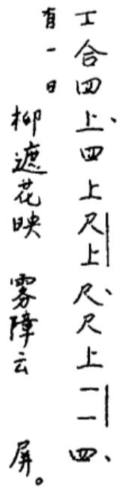 工合四上、四上尺上尺、尺上一一四、
有一日
柳遮花映 雾障云 屏。